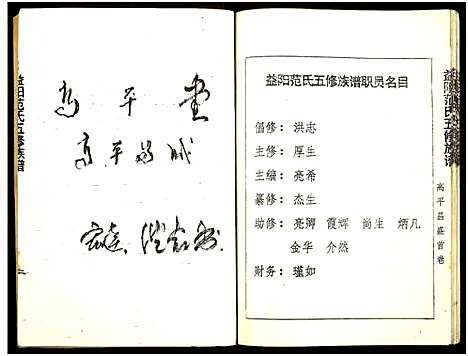 益阳范氏五修族谱职员名目
倡修：洪志
主修：厚生
主编：亮希
纂修：杰生
助修：亮卿 霞辉 尚生 炳凡
金华 介然
财务：瑾如
益阳范氏五修族谱
高平
首卷
高平堂
高平
益阳范氏五修族谱